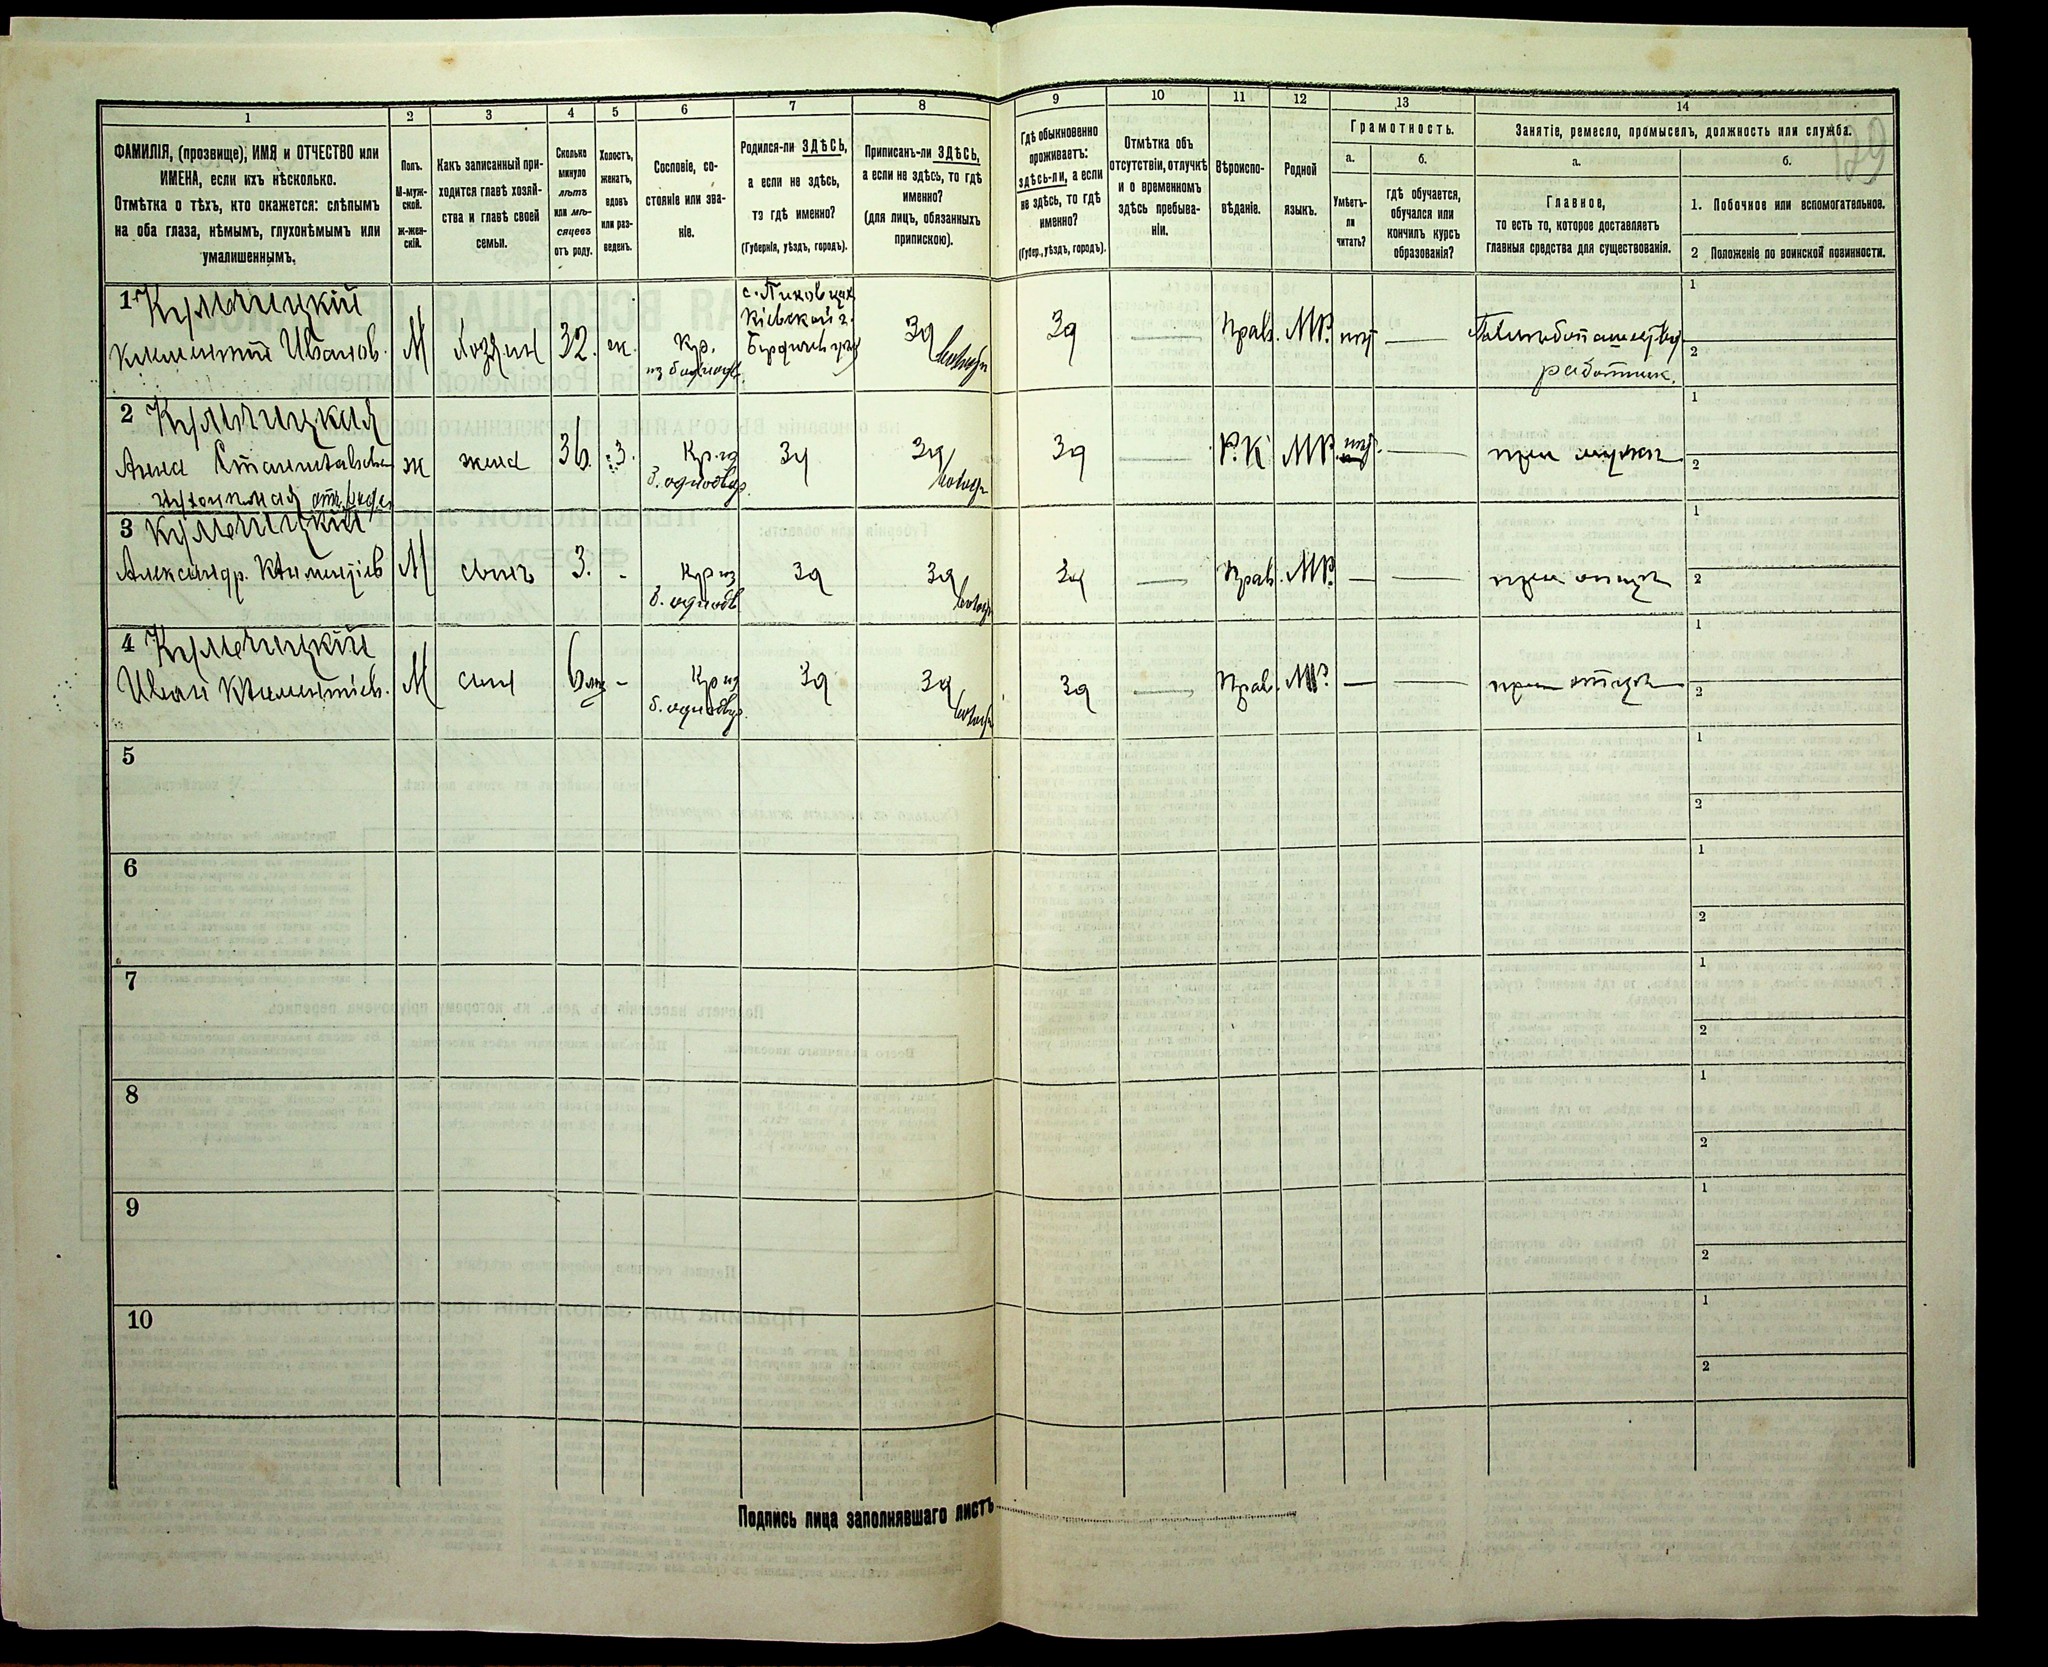 129
1
2
3
4
5
6
7
8
9
10
11
12
13
14
ФАМИЛІЯ, (прозвище), ИМЯ и ОТЧЕСТВО или
ИМЕНА, если ихъ нѣсколько.
Отмѣтка о тѣхъ, кто окажется: слѣпымъ
на оба глаза, нѣмымъ, глухонѣмымъ или
умалишеннымъ.
Полъ.
М-муж-
ской.
Ж-жен-
скій.
Какъ записанный при-
ходится главѣ хозяй-
ства и главѣ своей
семьи.
Сколько
минуло
лѣтъ
или мѣ-
сяцевъ
отъ роду.
Холостъ,
женатъ,
вдовъ
или раз-
веденъ.
Сословіе, со-
стояніе или зва-
ніе.
Родился-ли ЗДѢСЬ,
а если не здѣсь,
то гдѣ именно?
(Губернія, уѣздъ, городъ).
Приписанъ-ли ЗДѢСЬ,
а если не здѣсь, то гдѣ
именно?
(для лицъ, обязанныхъ
припискою).
Гдѣ обыкновенно
проживаетъ:
здѣсь-ли, а если
не здѣсь, то гдѣ
именно?
(Губер., уѣздъ, городъ).
Отмѣтка объ
отсутствіи, отлучкѣ
и о временномъ
здѣсь пребыва-
ніи.
Вѣроиспо-
вѣданіе.
Родной
языкъ.
Грамотность.
а.
Умѣетъ-
ли
читать?
б.
гдѣ обучается,
обучался или
кончилъ курсъ
образованія?
Занятіе, ремесло, промыселъ, должность или служба.
а.
Главное,
то есть то, которое доставляетъ
главныя средства для существованія.
б.
1. Побочное или вспомогательное.
2 Положеніе по воинской повинности.
1 Кульчицкій
Климентій Иванов.
М
Хозяин
32.
ж.
Кр.
из б. однодв.
Кіевской г.
Зд
Зд
Прав.
МР.
нет
работник.
1
2
2 Кульчицкая
Анна Станиславова
Ж
жена
36.
З.
Кр. из
б. однодвр.
Зд
Зд
Зд
Р.К.
МР.
нет.
при муже
1
2
3 Кульчицкій
Александр. Климентіев
М
сынъ
3.
-
Кр из
б. однодв
Зд
Зд
Зд
Прав.
МР.
при отце
1
2
4 Кульчицкій
Иван Климентіев.
М
сын
6 мц
-
Кр из
б. однодвр.
Зд
Зд
Зд
Прав.
МР.
при отце
1
2
5
1
2
6
1
2
7
1
2
8
1
2
9
1
2
10
1
2
Подпись лица заполнявшаго листъ